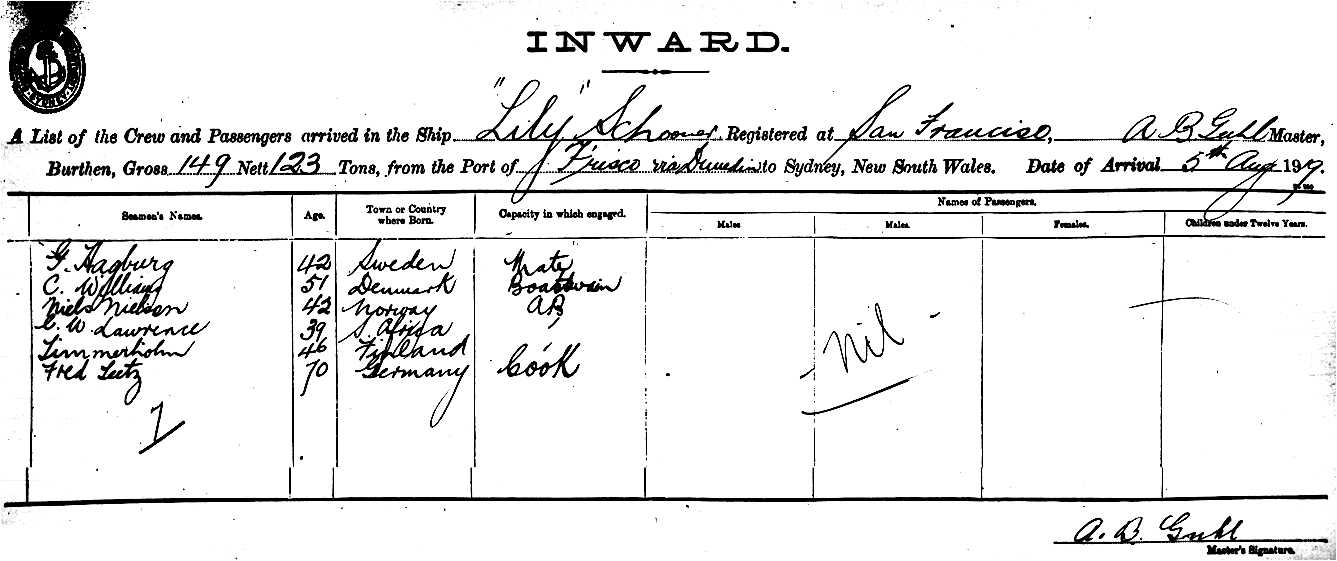 INWARD.
SYDNEY
A List of the Crew and Passengers arrived in the Ship "Lily" Schooner Registered at San Franciso, A B Guhl Master,
Burthen, Gross 149 Nett 123 Tons, from the Port of Frisco via Dunedin to Sydney, New South Wales. Date of Arrival 5th Aug 1919.
Names of Passengers.
Seamen's Names. Age. Town or Country where Born. Capacity in which engaged. Males Males. Females. Children under Twelve Years.
G. Hagburg 42 Sweden Mate
C. Williams 51 Denmark Boatswain
Niels Nielsen 42 Norway AB,
C. W. Lawrence 39 S Africa
Timmerholm 46 Finland
Fred Leetz 70 Germany Cook
Nil
7
A. B. Guhl
Master's Signature.